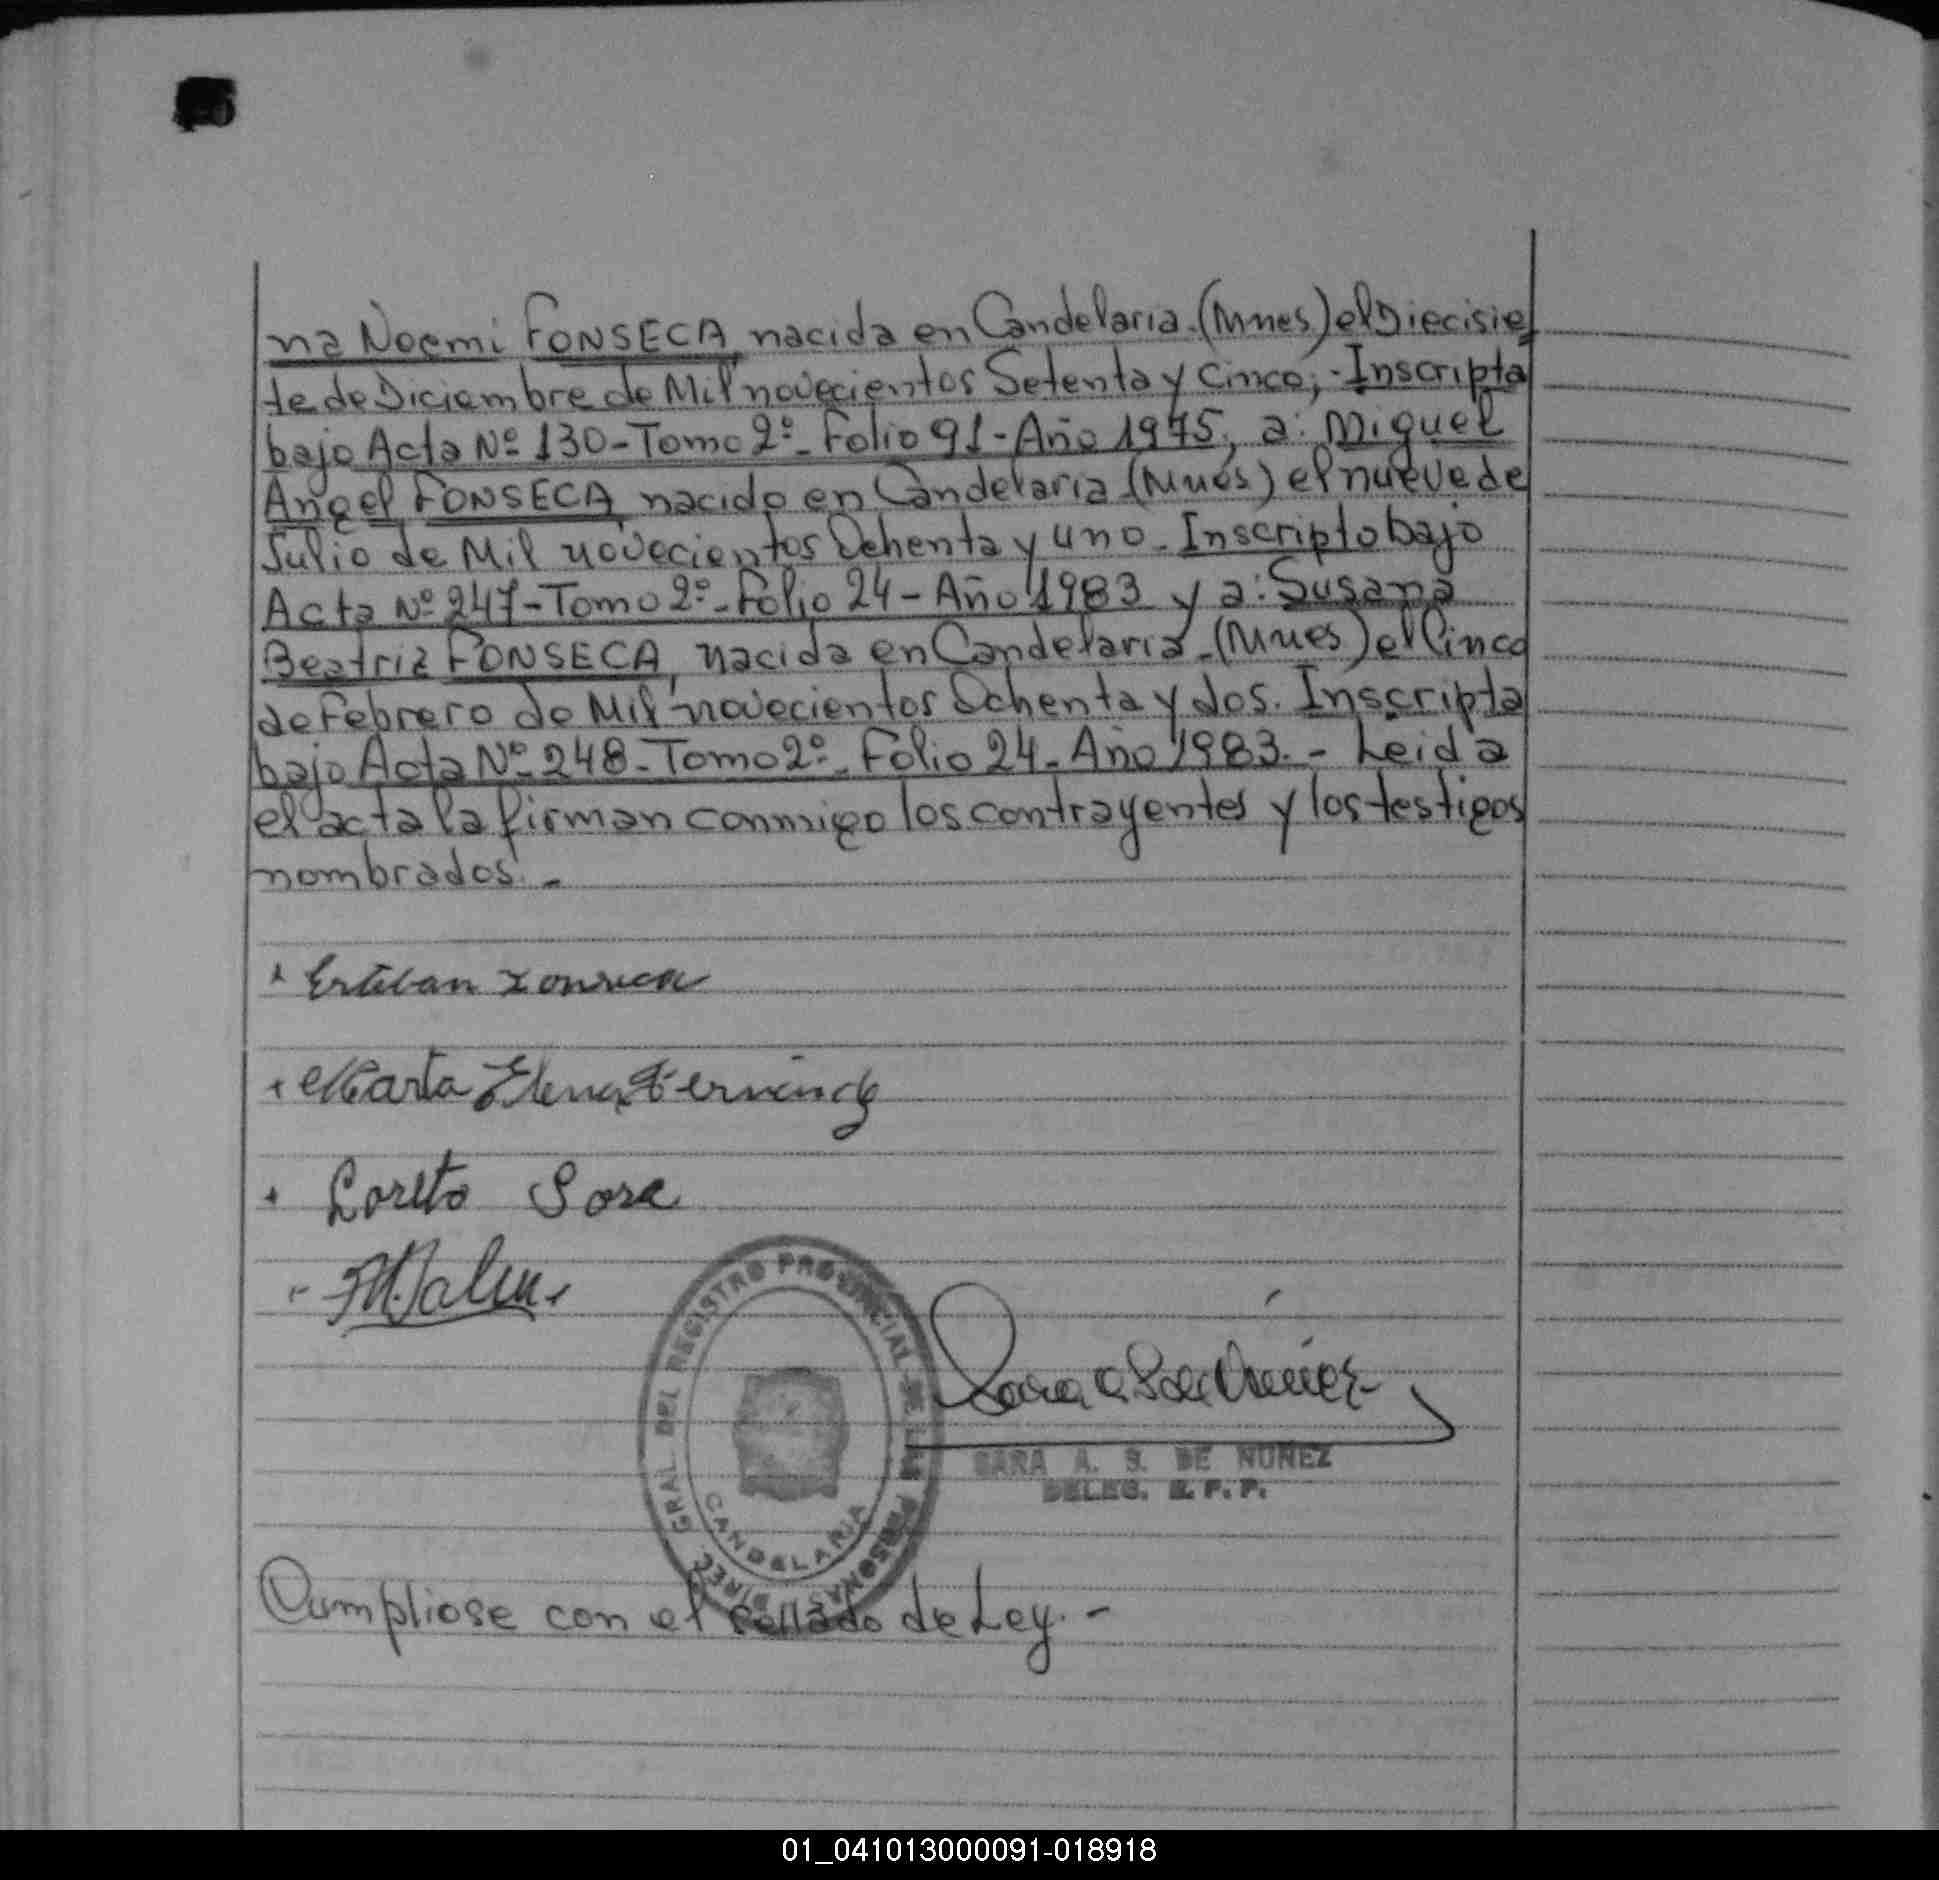 na Noemi FONSECA, nacida en Candelaria.(Mnes) el Diecisie
te de Diciembre de Mil novecientos Setenta y Cinco; - Inscripta
bajo Acta Nº 130 - Tomo 2º - Folio 91 - Año 1975, a: Miguel
Angel FONSECA, nacido en Candelaria (Mnes) el nueve de
Julio de Mil novecientos Ochenta y uno - Inscripto bajo
Acta Nº 247 - Tomo 2º - Folio 24 - Año 1983 y a: Susana
Beatriz FONSECA, nacida en Candelaria - (Mnes) el Cinco
de Febrero de Mil novecientos Ochenta y dos. Inscripta
bajo Acta Nº 248 - Tomo 2º - Folio 24 - Año 1983. - Leida
el acta la firman conmigo los contrayentes y los testigos
nombrados. -
Esteban Fonseca
Marta Elena Fernández
Loreto Sosa
DIREC. GRAL DEL REGISTRO PROVINCIAL DE LAS PERSONAS
CANDELARIA
SARA A. S. DE NUÑEZ
DELEG. R. P. P.
Cumpliose con el sellado de Ley. -
01_041013000091-018918